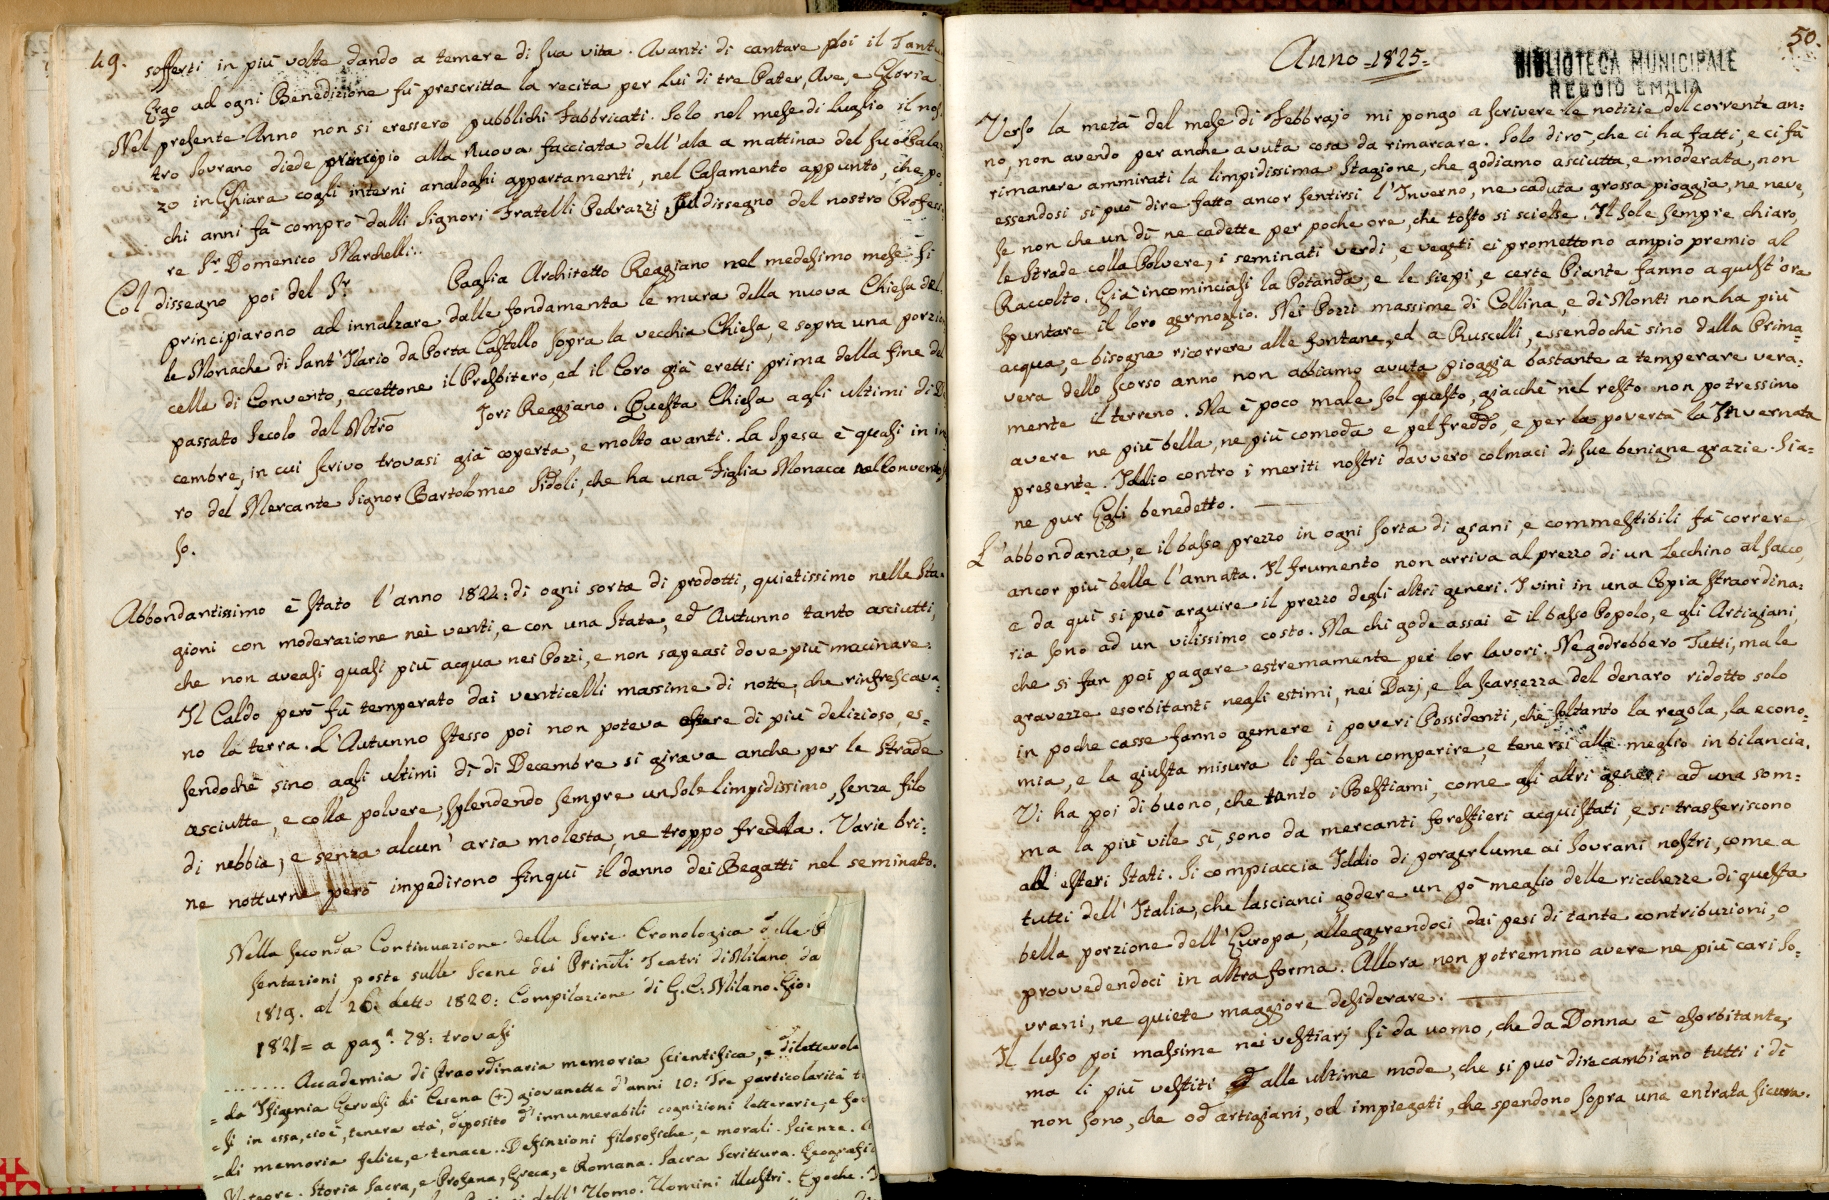 49.
sofferti in più volte dando a temere di sua vita. Avanti di cantare poi il Tantu
Ergo ad ogni Benedizione fù prescritta la recita per lui di tre Pater, Ave, e Gloria
Nel presente Anno non si eressero pubblichi Fabbricati. Solo nel mese di Luglio il nos
tro Sovrano diede principio alla nuova facciata dell'ala a mattina del suo Palaz
zo in Ghiara cogli interni analoghi appartamenti, nel Casamento appunto, che po
chi anni fà comprò dalli Signori Fratelli Pedrazzi, sul dissegno del nostro Profess
re Sr. Domenico Marchelli.
Col dissegno poi del Sr. Paglia Architetto Reggiano nel medesimo mese si
principiarono ad innalzare dalle fondamenta le mura della nuova Chiesa del
le Monache di Sant'Ilario da Porta Castello sopra la vecchia Chiesa, e sopra una porzio
cella di Convento, eccettone il Presbitero, ed il Coro già eretti prima della fine del
passato secolo dal Nstro Iori Reggiano. Questa Chiesa agli ultimi di De
cembre, in cui scrivo trovasi già coperta, e molto avanti. La spesa è quasi in in
ro del Mercante Signor Bartolomeo Sidoli, che ha una Figlia Monaca nel Convento
so.
Abbondantissimo è stato l'anno 1824: di ogni sorta di prodotti, quietissimo nelle Sta
gioni con moderazione nei venti, e con una State, ed Autunno tanto asciutti,
che non aveasi quasi più acqua nei Pozzi, e non sapeasi dove più macinare.
Il Caldo però fù temperato dai venticelli massime di notte, che rinfrescava-
no la terra. L'Autunno stesso poi non poteva essere di più delizioso, es=
sendochè sino agli ultimi dì di Decembre si girava anche per le Strade
asciutte, e colla polvere, splendendo sempre un Sole limpidissimo, senza filo
di nebbia, e senza alcun'aria molesta, ne troppo fredda. Varie bri:
ne notturne però impedirono finquì il danno dei Begatti nel seminato.
Nella seconda Continuazione della Serie Cronologica delle
sentazioni poste sulle Scene dei Princili Teatri di Milano da
1819. al 20: detto 1820: Compilazione di G.C. Milano. Gio.
1821= a paga. 78: trovasi
........ Accademia di straordinaria memoria scientifica, e dilettevole
=da Ifigenia Gervasi di Cesena (+) giovanetta d'anni 10: Tre particolarità
=si in essa, cioè, tenera età, deposito d'innumerabili cognizioni letterarie, e
=di memoria felice, e tenace. Definizioni filosofiche, e morali. Scienze.
Storia Sacra, e Profana, Greca, e Romana. Sacra Scrittura. Geografi
dell'Uomo. Uomini illustri. Epoche.
50.
Anno =1825=
BIBLIOTECA MUNICIPALE
REGGIO EMILIA
Verso la metà del mese di Febbrajo mi pongo a scrivere le notizie del corrente an=
no, non avendo per anche avuta cosa da rimarcare. Solo dirò, che ci ha fatti, e ci fà
rimanere ammirati la limpidissima Stagione, che godiamo asciutta, e moderata, non
essendosi si può dire fatto ancor sentirsi l'Inverno, ne caduta grossa pioggia, ne neve,
se non che un dì ne cadette per poche ore, che tosto si sciolse. Il Sole sempre chiaro,
le Strade colla Polvere, i seminati verdi, e vegeti ci promettono ampio premio al
Raccolto. Già incominciasi la Potanda, e le siepi, e certe Piante fanno a quest'ora
spuntare il loro germoglio. Nei Pozzi massime di Collina, e di Monti non ha più
acqua, e bisogna ricorrere alle fontane, ed a Ruscelli, essendochè sino dalla Prima=
vera dello scorso anno non abbiamo avuta pioggia bastante a temperare vera:
mente il terreno. Ma è poco male sol questo, giacchè nel resto non potressimo
avere ne più bella, ne più comoda e pel freddo, e per la povertà la Invernata
presente. Iddio contro i meriti nostri davvero colmaci di sue benigne grazie. Sia=
ne pur Egli benedetto.
L'abbondanza, e il basso prezzo in ogni sorta di grani, e commestibili fà correre
ancor più bella l'annata. Il frumento non arriva al prezzo di un Zecchino al sacco,
e da quì si può arguire il prezzo degli altri generi. I vini in una Copia straordina:
ria sono ad un vilissimo costo. Ma chi gode assai è il basso Popolo, e gli Artigiani,
che si fan poi pagare estremamente pei lor lavori. Ne godrebbero Tutti, ma le
gravezze esorbitanti negli estimi, nei Dazj, e la scarsezza del denaro ridotto solo
in poche casse fanno gemere i poveri Possidenti, che soltanto la regola, la econo=
mia, e la giusta misura li fà ben comparire, e tenersi alla meglio in bilancia.
Vi ha poi di buono, che tanto i Bestiami, come gli altri generi ad una som=
ma la più vile sì, sono da mercanti forestieri acquistati, e si trasferiscono
ad esteri Stati. Si compiaccia Iddio di porger lume ai Sovrani nostri, come a
tutti dell'Italia, che lascianci godere un pò meglio delle ricchezze di questa
bella porzione dell'Europa, alleggerendoci dai pesi di tante contribuzioni, o
provvedendoci in altra forma. Allora non potremmo avere ne più cari So=
vrani, ne quiete maggiore desiderare.
Il lusso poi massime nei vestiarj sì da uomo, che da Donna è esorbitante,
ma li più vestiti alle ultime mode, che si può dire cambiano tutti i dì
non sono, che od artigiani, od impiegati, che spendono sopra una entrata sicura.